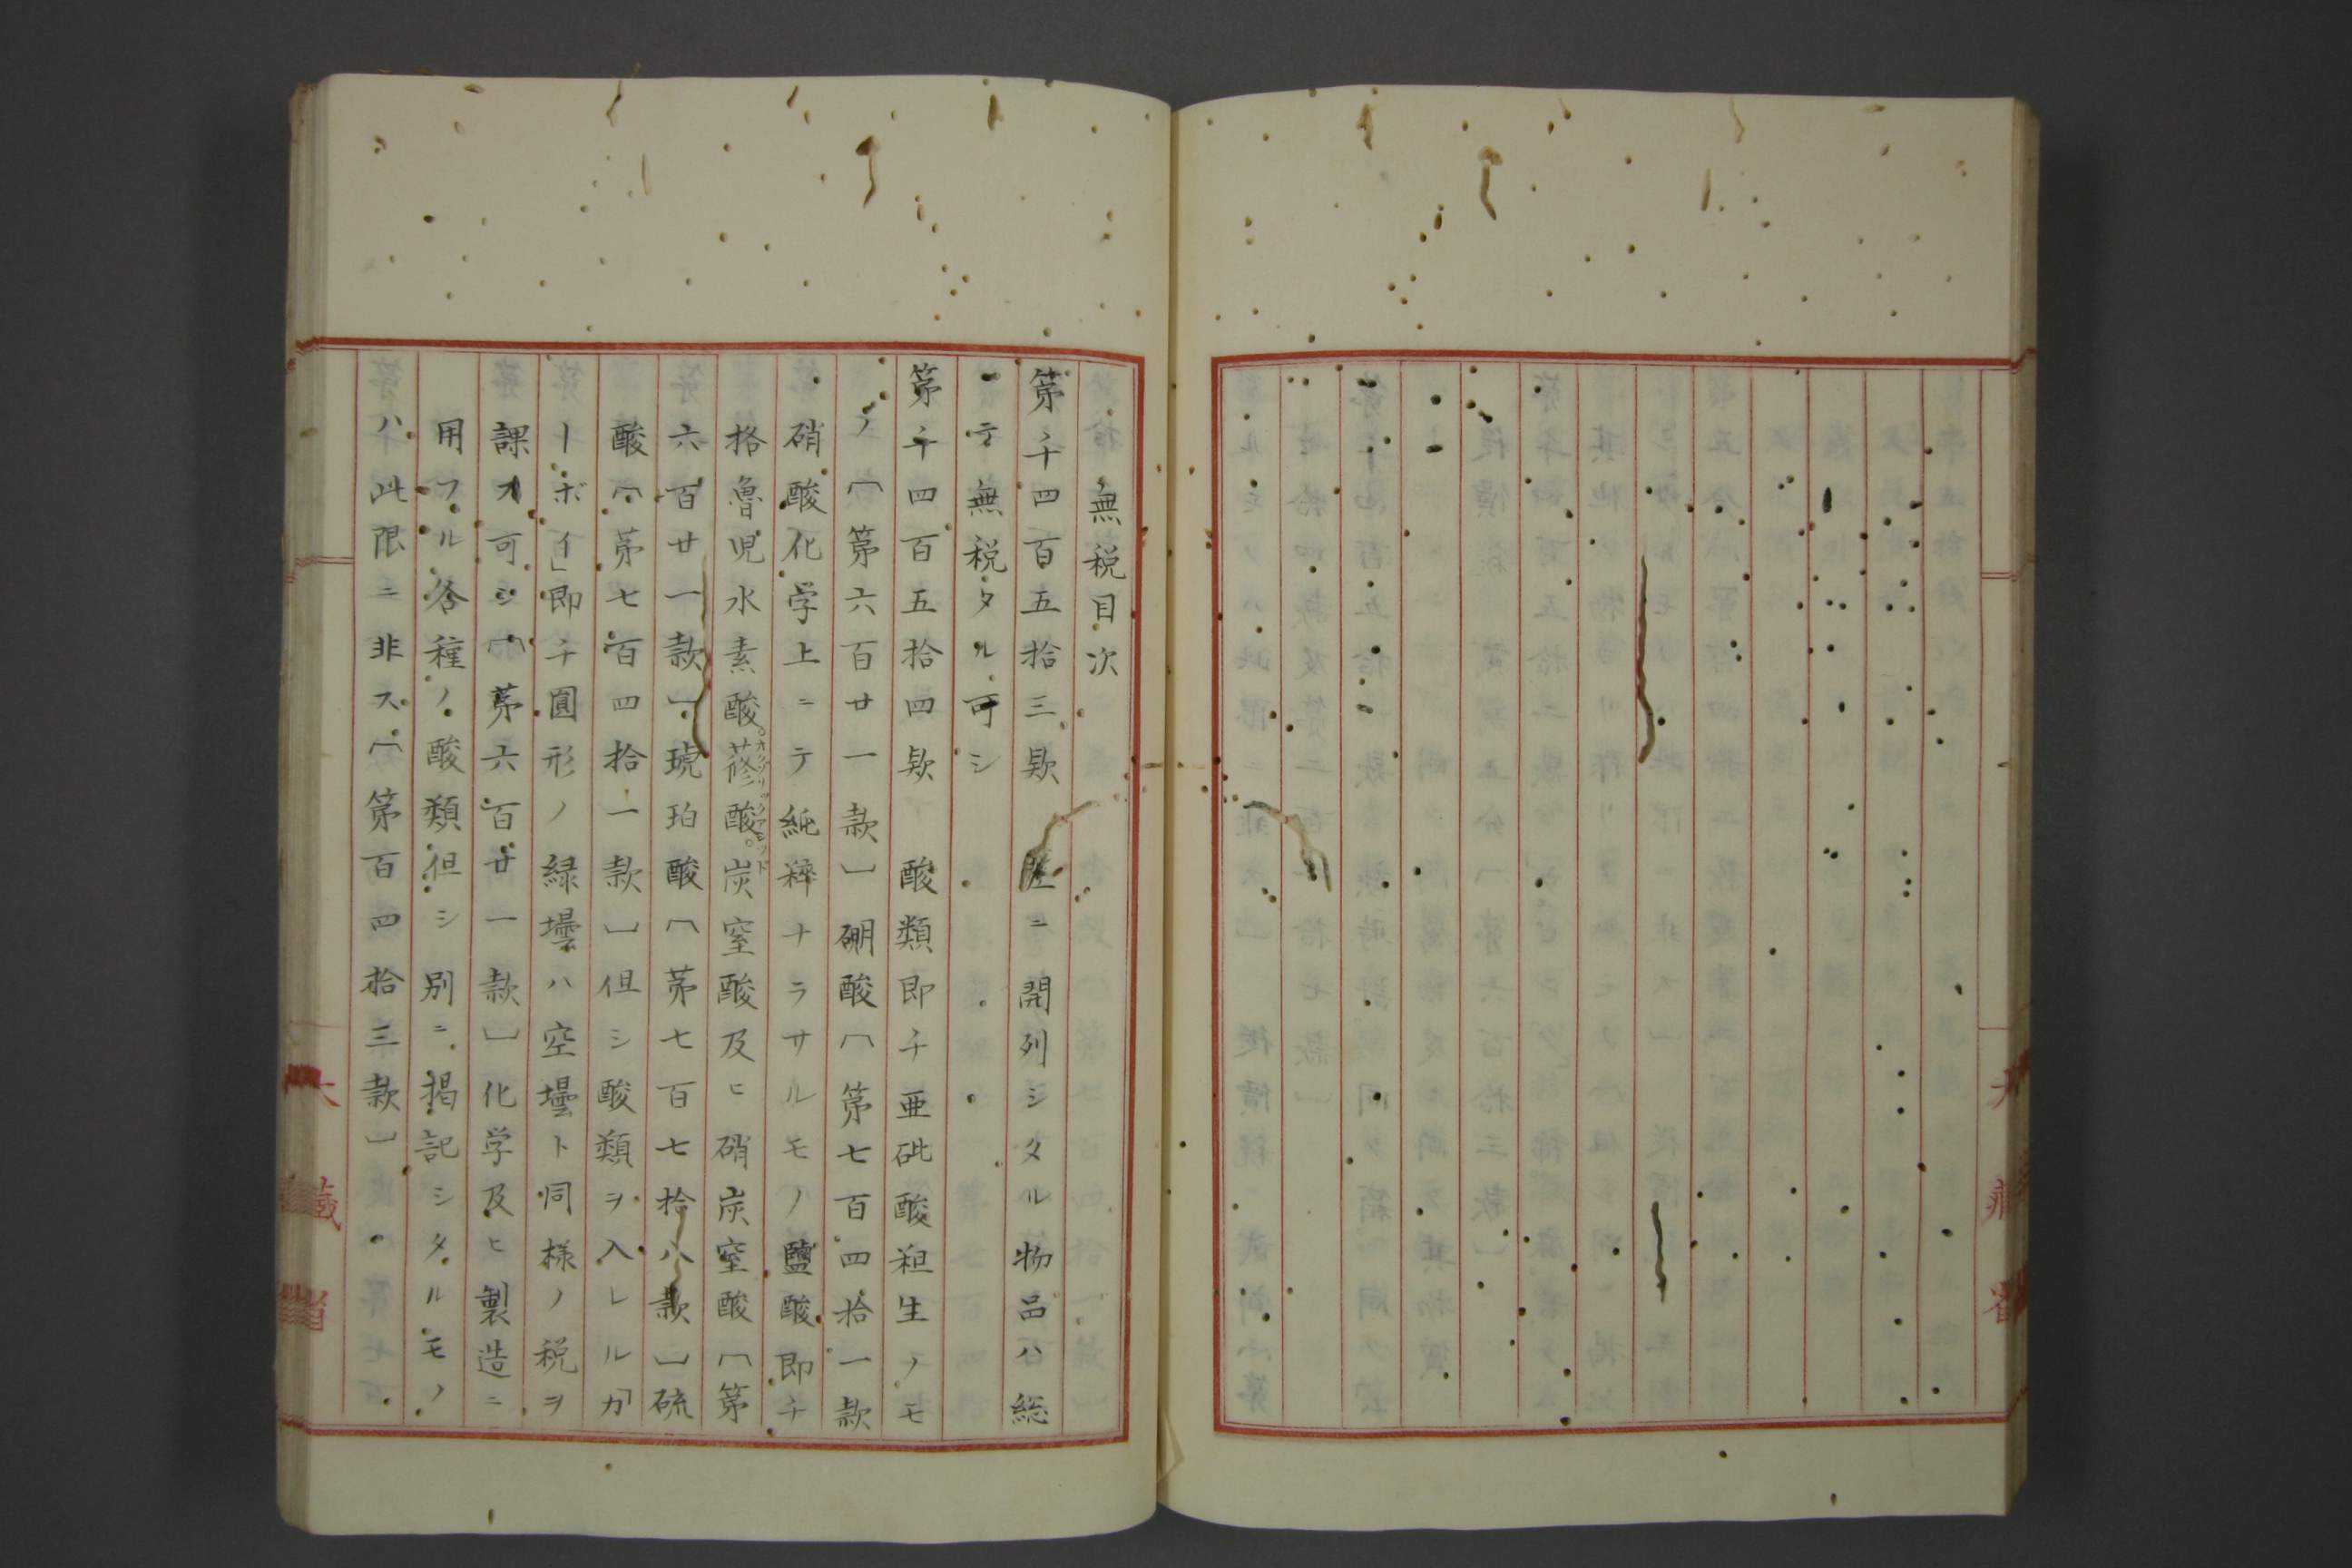 無税目次
第千四百五拾三欵　左ニ開列シタル物品ハ総
テ無税タル可シ
第千四百五拾四欵　酸類即チ亜砒酸粗生ノモ
ノ〔第六百廿一款〕硼酸〔第七百四拾一款
硝酸化学上ニテ純粋ナラサルモノ鹽酸即チ
格魯児水素酸。蓚酸。炭窒酸及ヒ硝炭窒酸〔第
オクザリックアシッド
六百廿一款〕琥珀酸〔第七百七拾八款〕硫
酸〔第七百四拾一款〕但シ酸類ヲ入レルカ「
ーボイ」即チ圓形ノ緑壜ハ空壜ト同様ノ税ヲ
課ス可シ〔第六百廿一款〕化学及ヒ製造ニ
用フル各種ノ酸類但シ別ニ掲記シタルモノ
ハ此限ニ非ス〔第百四拾三款〕
大藏省